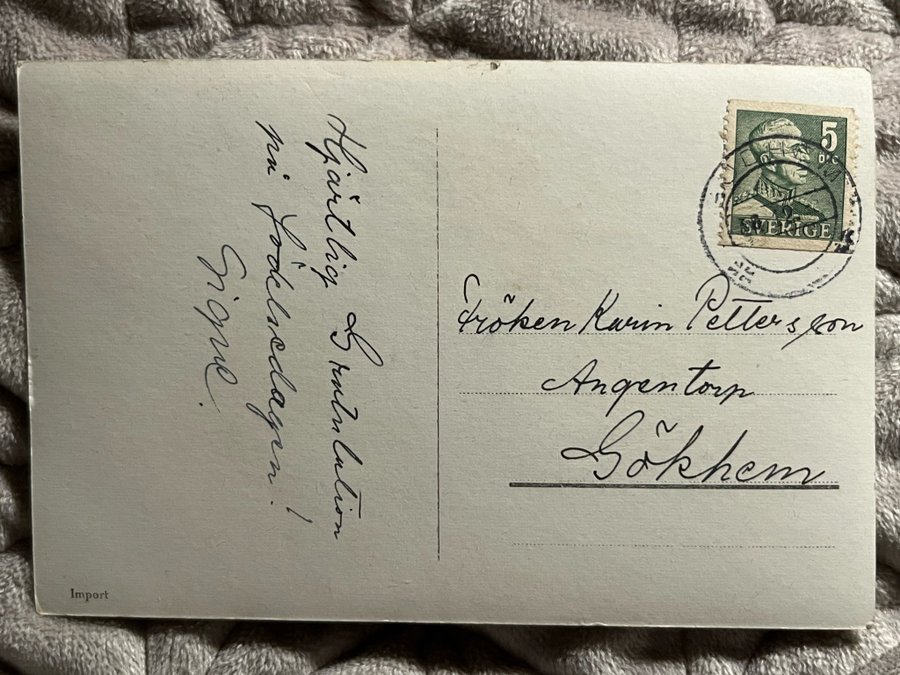 Hjärtlig Gratulation
på födelsedagen!
Signe.
5
ÖRE
SVERIGE
Fröken Karin Pettersson
Angentorp
Gökhem
Import